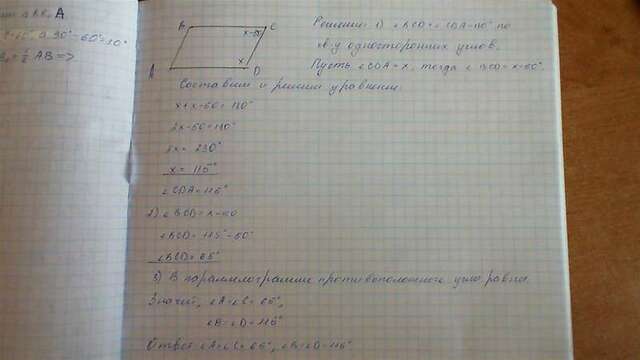 A
= 30°
= ½ AB =>
B C
x-50
x
A D
Решение: 1) ∠BCD+∠CDA=180° по
св-у односторонних углов.
Пусть ∠CDA=x, тогда ∠BCD=x-50°
Составим и решим уравнение:
x+x-50=180°
2x-50=180°
2x=230°
x=115°
∠CDA=115°
2) ∠BCD=x-50
∠BCD=115°-50°
∠BCD=65°
3) В параллелограмме противоположные углы равны.
Значит, ∠A=∠C=65°,
∠B=∠D=115°
Ответ: ∠A=∠C=65°, ∠B=∠D=115°